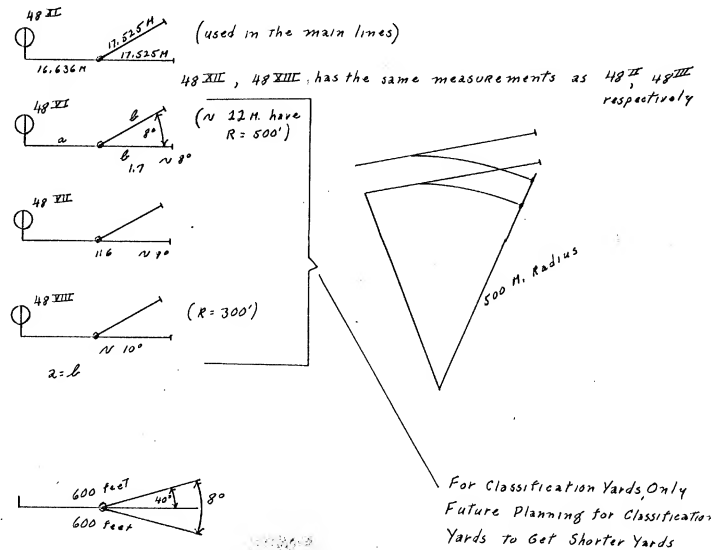 48 XI
17.525M
17.525M
16.636M
(used in the main lines)
48 XII, 48 XIII, has the same measurements as 48 II, 48 III
respectively
48 VI
b
a
8°
b
1.7 ~ 8°
(~ 22 M. have
R = 500')
48 VII
1:6 ~ 9°
48 VIII
(R = 300')
~ 10°
a = b
500 M. Radius
600 feet
600 feet
40°
8°
For Classification Yards Only
Future Planning for Classification
Yards to Get Shorter Yards